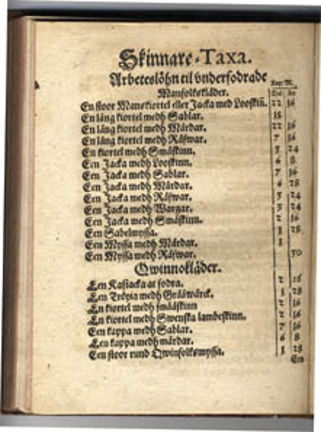 Skinnare-Taxa.
Arbeteslöhn til vnderfodrade
Manfolkskläder.
En stoor Manskiortel eller Jacka med Looskin. 22 16
En lång kiortel medh Sablar. 18
En lång kiortel medh Mårdar. 22 16
En lång kiortel medh Räfwar. 7 16
En kiortel medh Småskinn. 3 24
Een Jacka medh Looskinn. 6 8
Een Jacka medh Sablar. 7 16
Een Jacka medh Mårdar. 6 28
Een Jacka medh Räfwar. 3 24
Een Jacka medh Wargar. 3 24
Een Jacka medh Småskinn. 2 16
Een Sabelmyssa. 1 28
Een Myssa medh Mårdar. 1
Een Myssa medh Räfwar. 30
Qwinnokläder.
Een Kastiacka at fodra. 2 16
Een Tröyia medh Gråäwärck. 1 28
En kiortel medh småäskinn 2 16
En kiortel medh Swenska lambeskinn. 2 28
Een kappa medh Sablar. 7 16
Een kappa medh mårdar. 6 8
Een stoor rund Qwinfolksmyssa. 1 28
Een